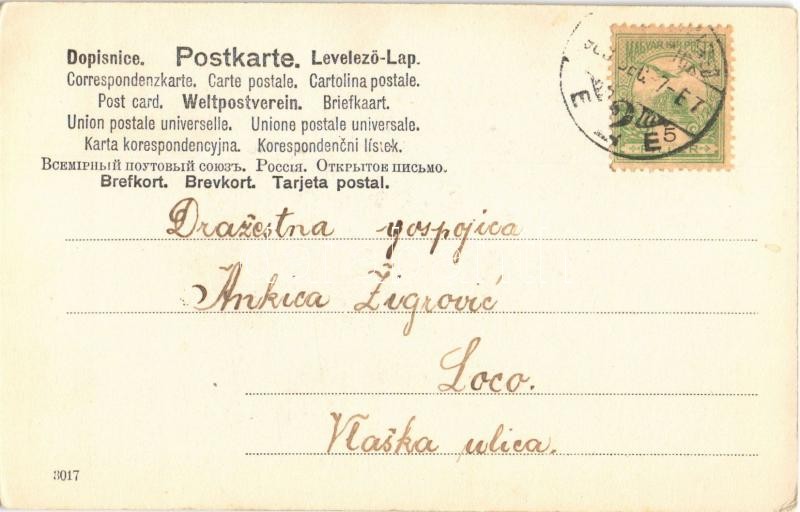 Dopisnice. Postkarte. Levelező-Lap.
Correspondenzkarte. Carte postale. Cartolina postale.
Post card. Weltpostverein. Briefkaart.
Union postale universelle. Unione postale universale.
Karta korespondencyjna. Korespondenční lístek.
Всемірный поутовый союзъ. Россія. Открытое письмо.
Brefkort. Brevkort. Tarjeta postal.
MAGYAR KIR. POSTA
5
Dražestna gospojica
Ankica Žigrović
Loco.
Vlaška ulica.
3017